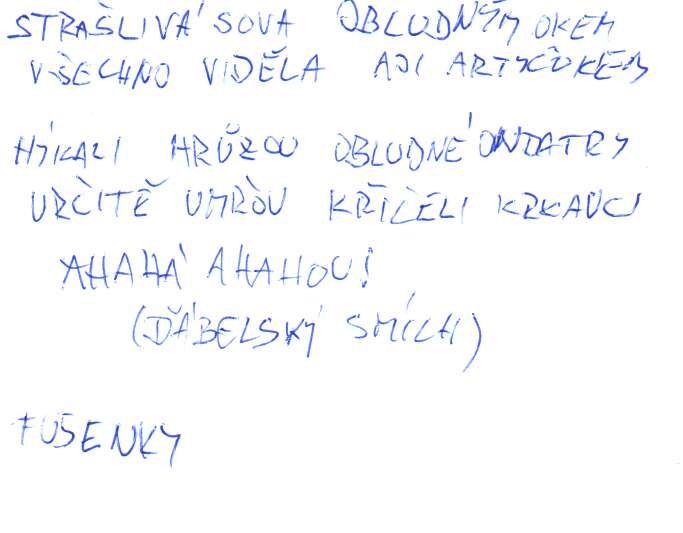 STRAŠLIVÁ SOVA OBLUDNÝM OKEM
VŠECHNO VIDĚLA AJI ARTYČOKEM
HÝKALI HRŮZOU OBLUDNÉ ONDATRY
URČITĚ UMŘOU KŘIČELI KRKAVCI
AHAHÁ AHAHOU!
(ĎÁBELSKÝ SMÍCH)
FUŠENKY